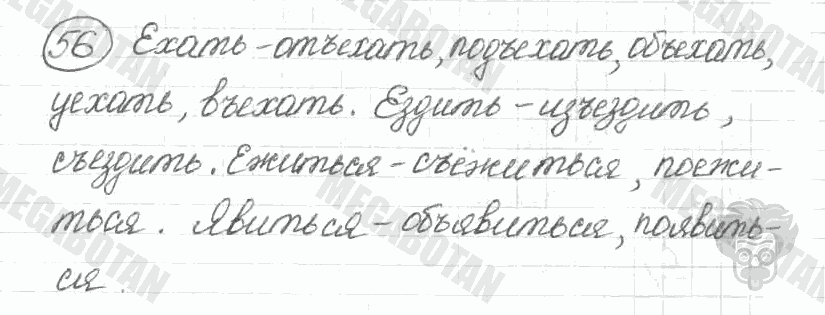 56 Ехать – отъехать, подъехать, объехать,
уехать, въехать. Ездить – изъездить,
съездить. Ежиться – съёжиться, поежи-
ться. Явиться – объявиться, появить-
ся.
MEGABOTAN